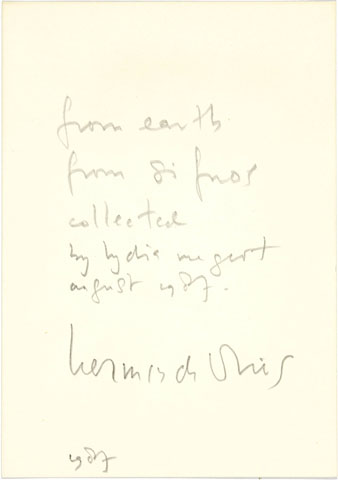 from earth
from sifnos
collected
by lydia megert
august 1987.
herman de vries
1987